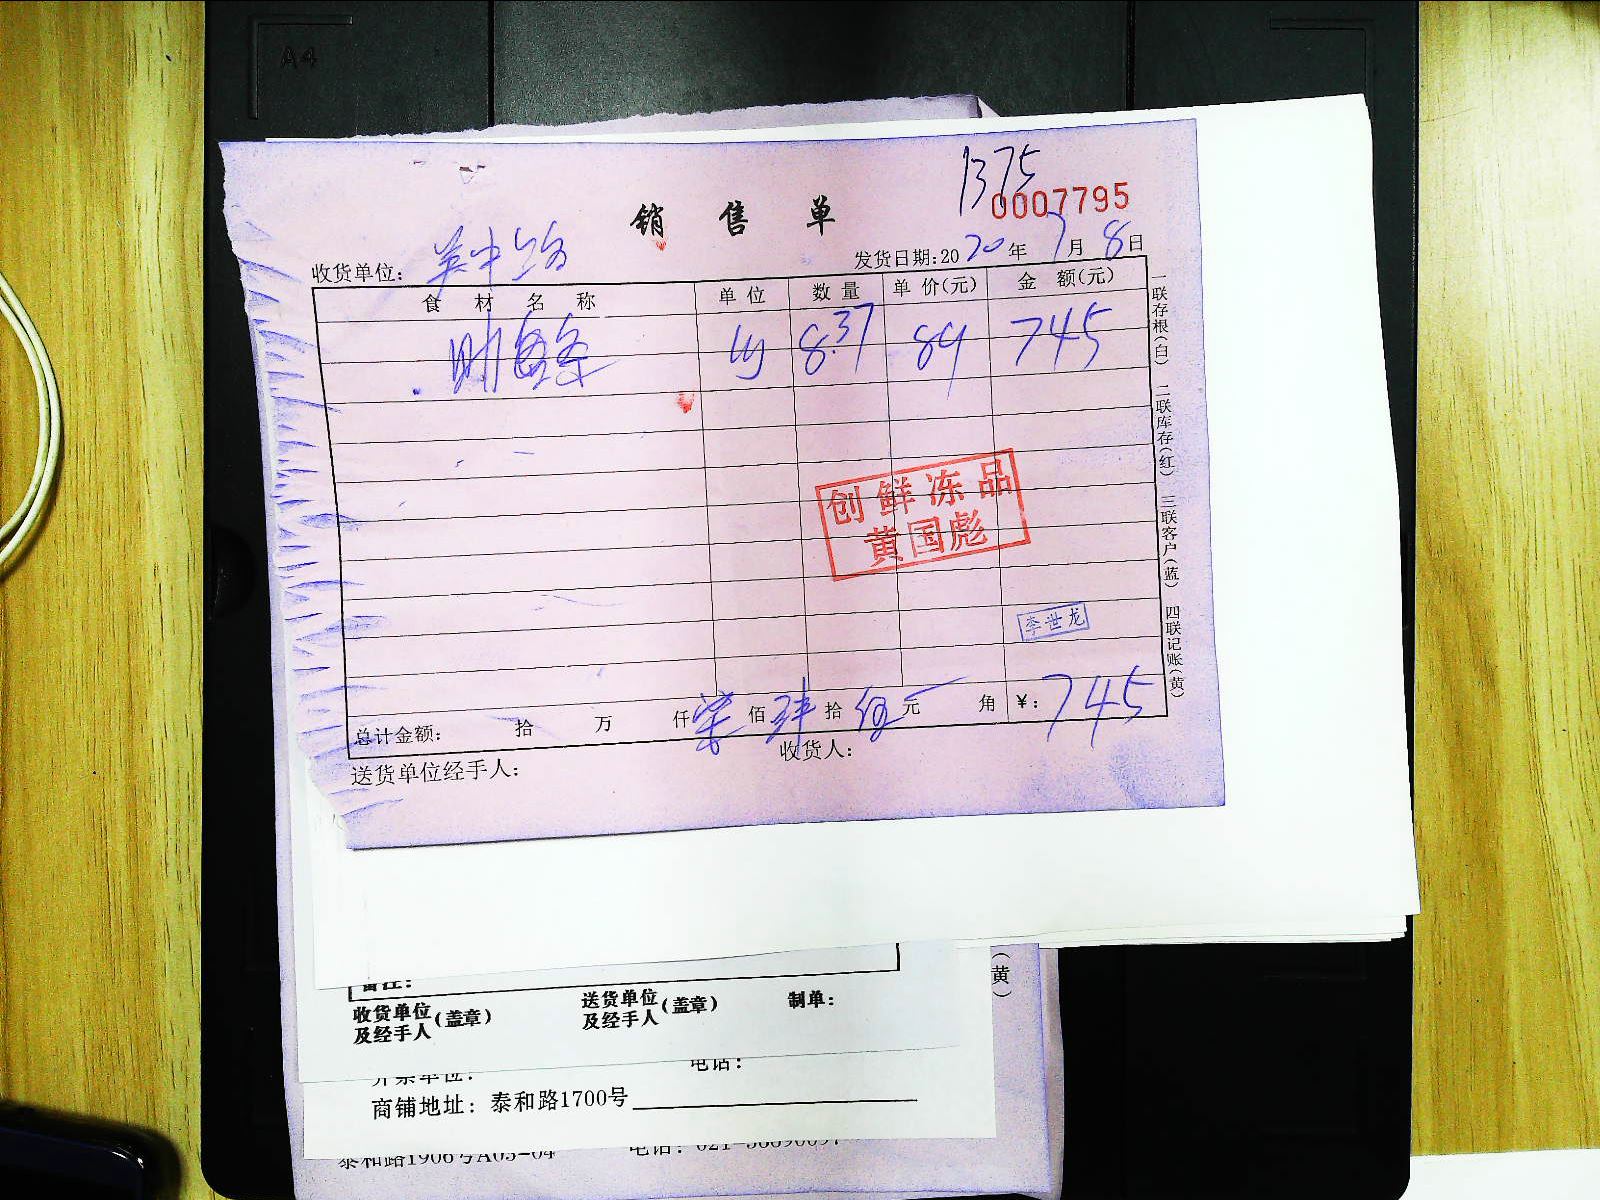 A4
1375
0007795
销售单
收货单位: 吴中路
发货日期:2020年7月8日
食材名称 单位 数量 单价(元) 金额(元)
8.37 89 745
一联存根(白) 二联库存(红) 三联客户(蓝) 四联记账(黄)
创鲜冻品
黄国彪
李世龙
总计金额: 拾 万 仟 柒佰肆拾伍元 角 ¥: 745
送货单位经手人: 收货人:
(黄)
备注:
收货单位及经手人(盖章) 送货单位及经手人(盖章) 制单:
开票单位: 电话:
商铺地址: 泰和路1700号
泰和路1906号A05-04 电话: 021-